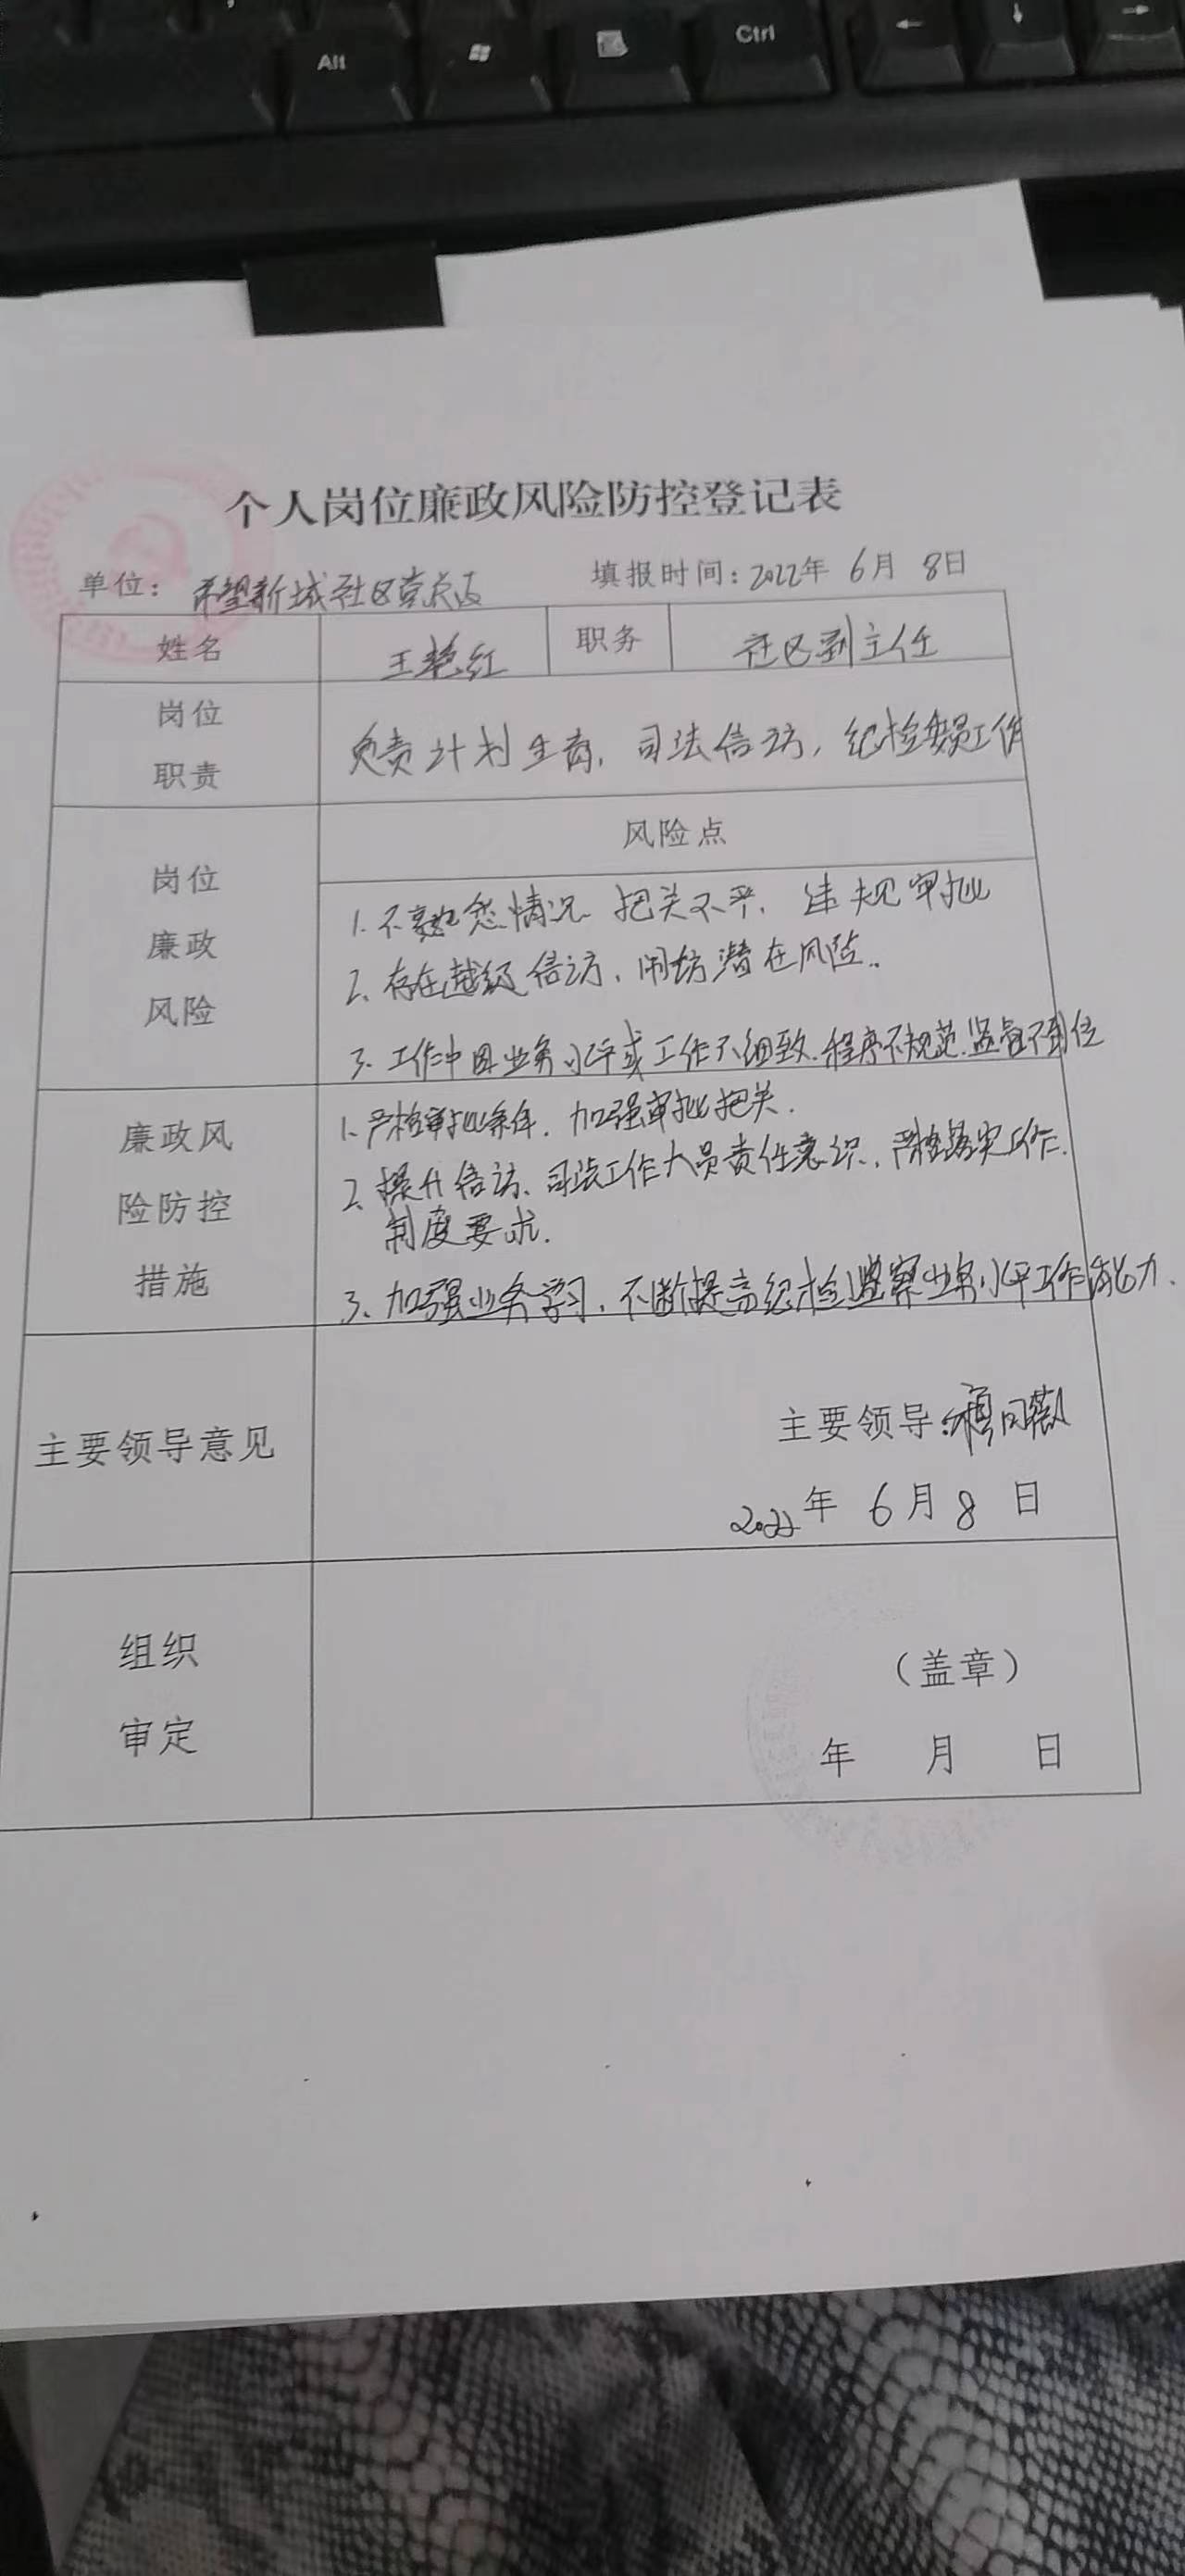 Alt
Ctrl
← ↓ →
个人岗位廉政风险防控登记表
单位: 希望新城社区党总支 填报时间: 2022年 6月 8日
姓名 王艳红 职务 社区副主任
岗位
职责
负责计划生育, 司法信访, 纪检委员工作
风险点
岗位
廉政
风险
1. 不熟悉情况 把关不严, 违规审批
2、存在越级信访、闹访潜在风险。
3. 工作中因业务水平或工作不细致、程序不规范.监督不到位
廉政风
险防控
措施
1. 严格审批条件, 加强审批把关.
2、提升信访、司法工作人员责任意识, 严格落实工作.
制度要求.
3、加强业务学习, 不断提高纪检监察业务水平工作能力.
主要领导意见
主要领导:
2022年 6月 8 日
组织
审定
(盖章)
年 月 日